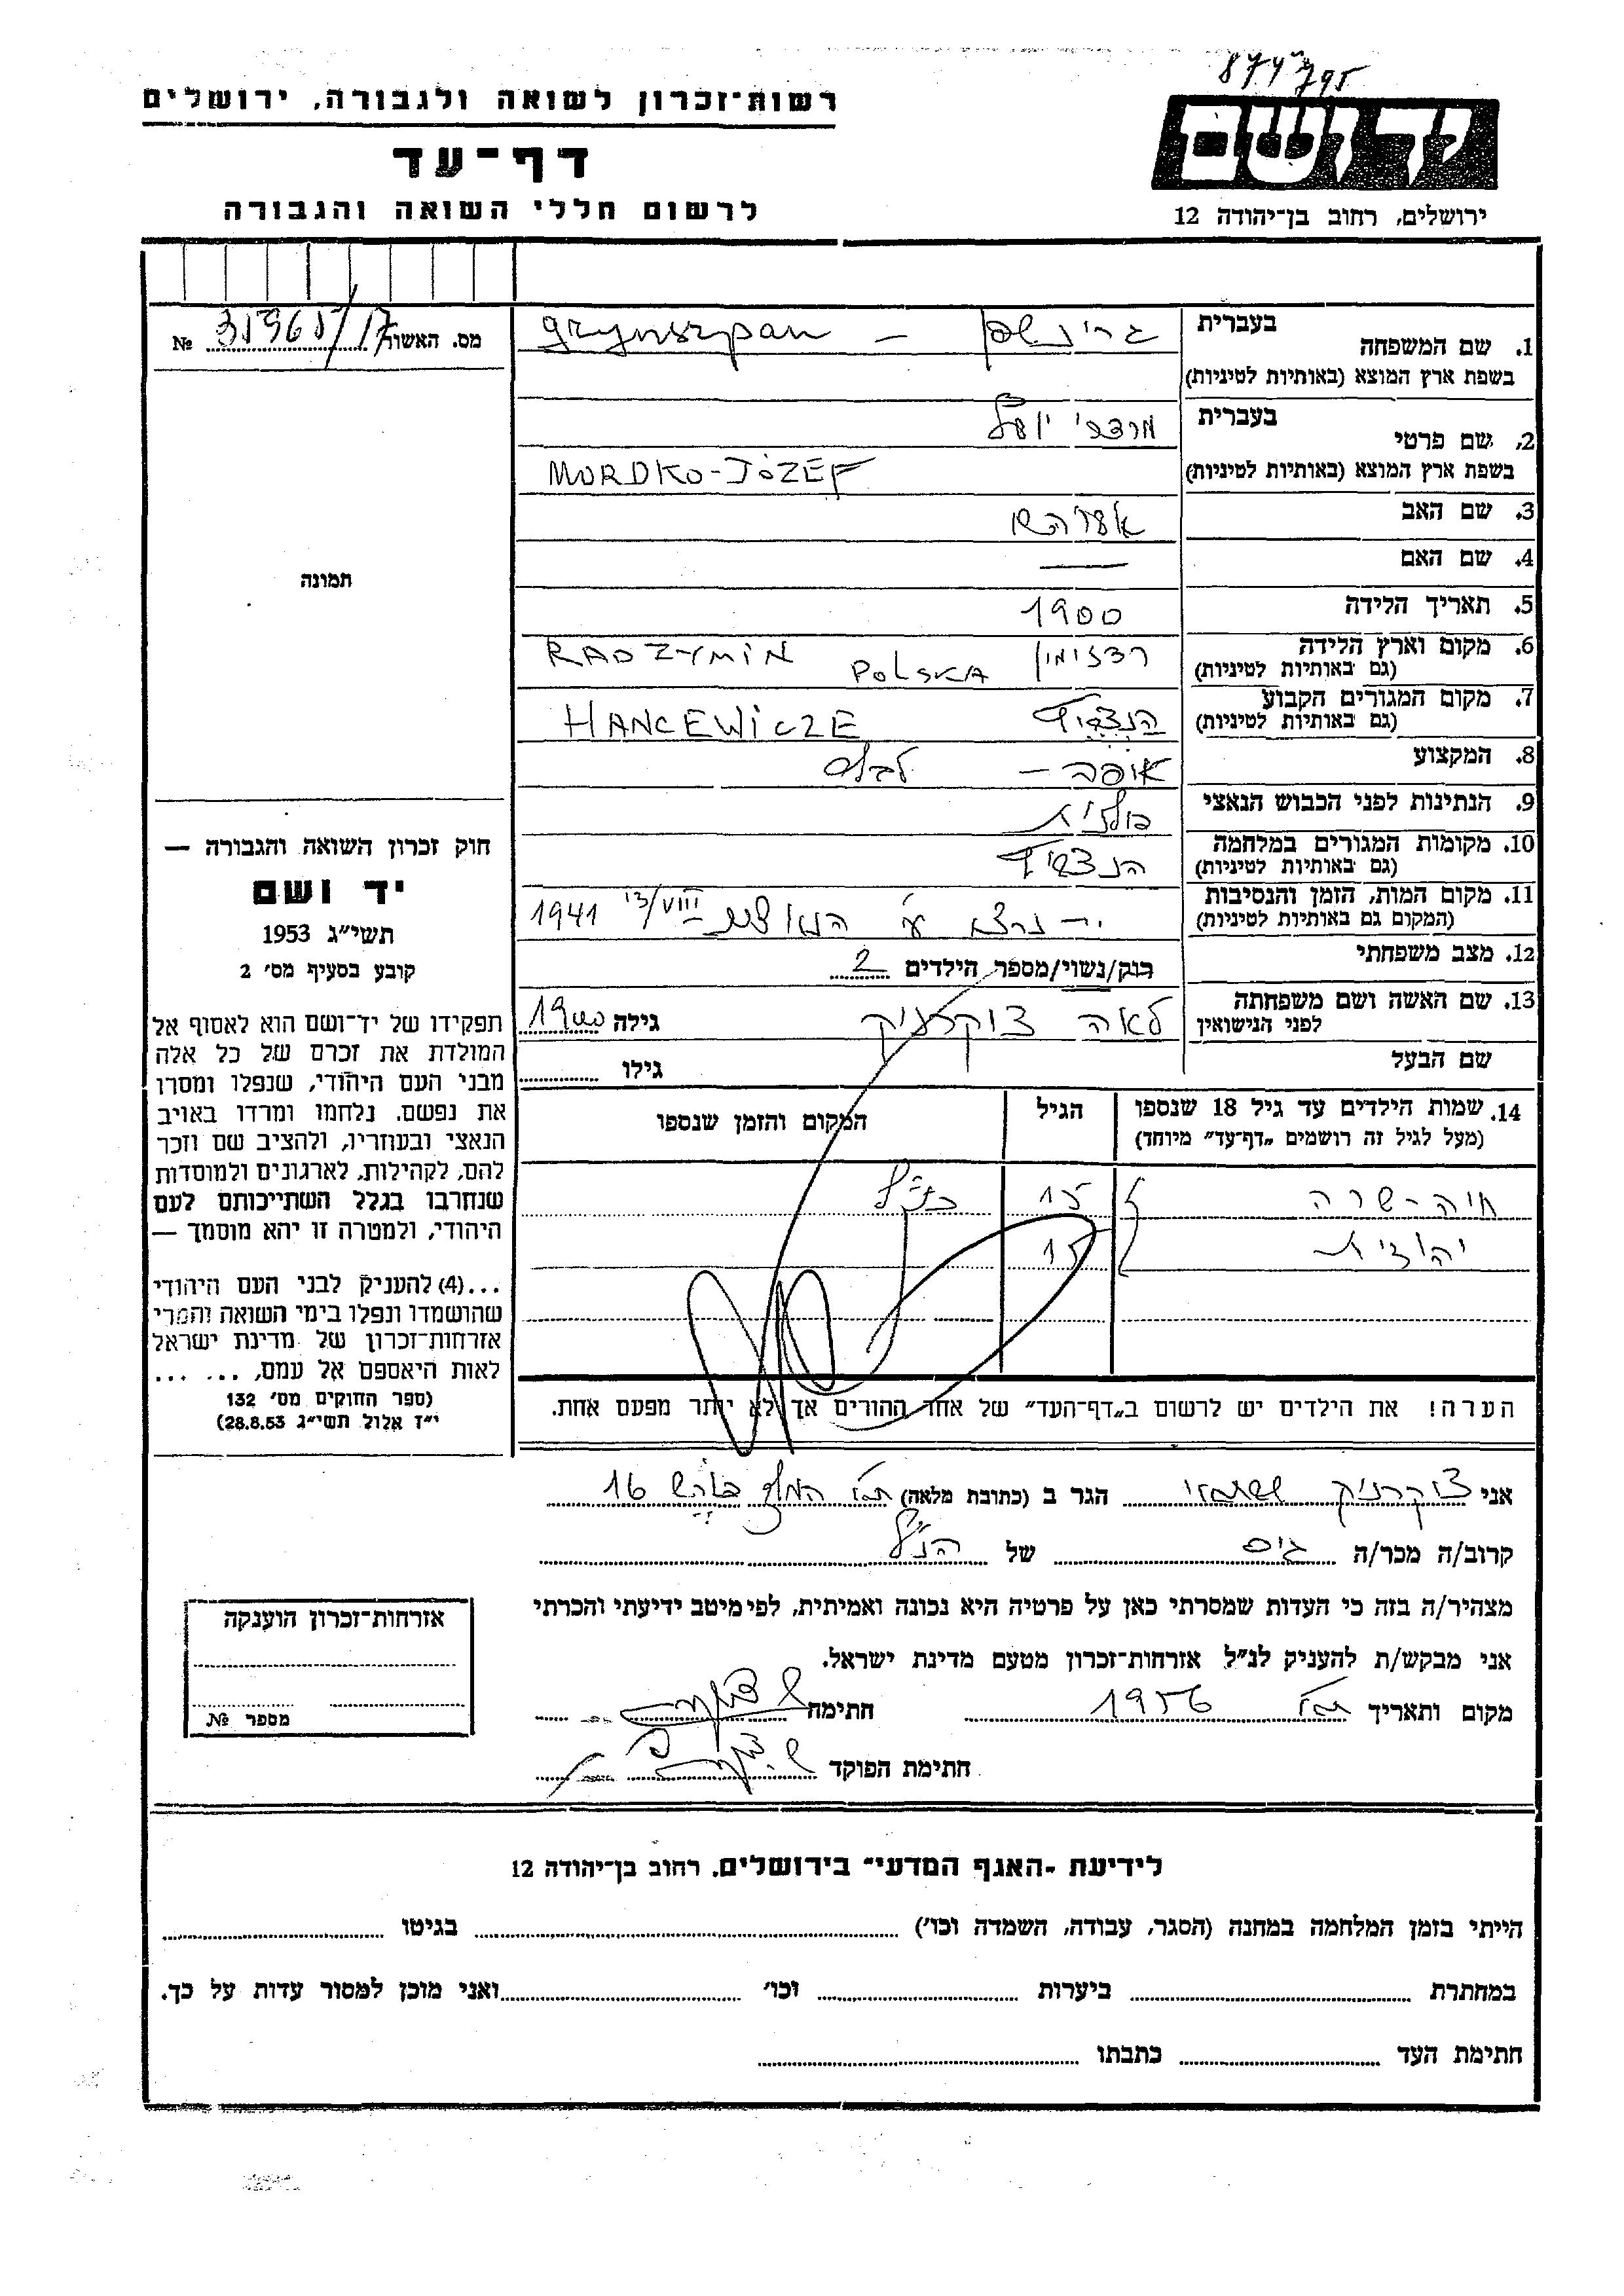 874795
יד ושם
ירושלים, רחוב בן־יהודה 12
רשות־זכרון לשואה ולגבורה, ירושלים
דף־עד
לרשום חללי השואה והגבורה
מס. האשור 31961/17 №
תמונה
חוק זכרון השואה והגבורה —
יד ושם
תשי״ג 1953
קובע בסעיף מס׳ 2
תפקידו של יד־ושם הוא לאסוף אל
המולדת את זכרם של כל אלה
מבני העם היהודי, שנפלו ומסרו
את נפשם. נלחמו ומרדו באויב
הנאצי ובעוזריו, ולהציב שם וזכר
להם, לקהילות, לארגונים ולמוסדות
שנחרבו בגלל השתייכותם לעם
היהודי, ולמטרה זו יהא מוסמך —
...(4) להעניק לבני העם היהודי
שהושמדו ונפלו בימי השואה והמרי
אזרחות־זכרון של מדינת ישראל
לאות היאספם אל עמם, ... ...
(ספר החוקים מס׳ 132
י״ז אלול תשי״ג 28.8.53)
בעברית
1. שם המשפחה גרינשפן — grynszpan
בשפת ארץ המוצא (באותיות לטיניות)
בעברית
2. שם פרטי מרדכי יוסף
בשפת ארץ המוצא (באותיות לטיניות) MORDKO-JÓZEF
3. שם האב
4. שם האם —
5. תאריך הלידה 1900
6. מקום וארץ הלידה רדזימין POLSKA RADZYMIN
(גם באותיות לטיניות)
7. מקום המגורים הקבוע הנצביץ HANCEWICZE
(גם באותיות לטיניות)
8. המקצוע אופה —
9. הנתינות לפני הכבוש הנאצי פולנית
10. מקומות המגורים במלחמה הנצביץ
(גם באותיות לטיניות)
11. מקום המות, הזמן והנסיבות נרצח ע״י הנאצים 13/VIII 1941
(המקום גם באותיות לטיניות)
12. מצב משפחתי רוק/נשוי/מספר הילדים 2
13. שם האשה ושם משפחתה לאה צוקרניק גילה 1900
לפני הנישואין
שם הבעל גילו
14. שמות הילדים עד גיל 18 שנספו הגיל המקום והזמן שנספו
(מעל לגיל זה רושמים „דף־עד״ מיוחד)
חיה-שרה 15 כנ״ל
יהודית 15
הערה! את הילדים יש לרשום ב„דף־העד״ של אחד ההורים אך לא יותר מפעם אחת.
אני צוקרניק הגר ב (כתובת מלאה) 16
קרוב/ה מכר/ה גיס של הנ״ל
מצהיר/ה בזה כי העדות שמסרתי כאן על פרטיה היא נכונה ואמיתית, לפי מיטב ידיעתי והכרתי
אני מבקש/ת להעניק לנ״ל אזרחות־זכרון מטעם מדינת ישראל.
מקום ותאריך 1956 חתימה
חתימת הפוקד
אזרחות־זכרון הוענקה
מספר №
לידיעת ״האגף המדעי״ בירושלים. רחוב בן־יהודה 12
הייתי בזמן המלחמה במחנה (הסגר, עבודה, השמדה וכו׳) בגיטו
במחתרת ביערות וכו׳ ואני מוכן למסור עדות על כך.
חתימת העד כתבתו